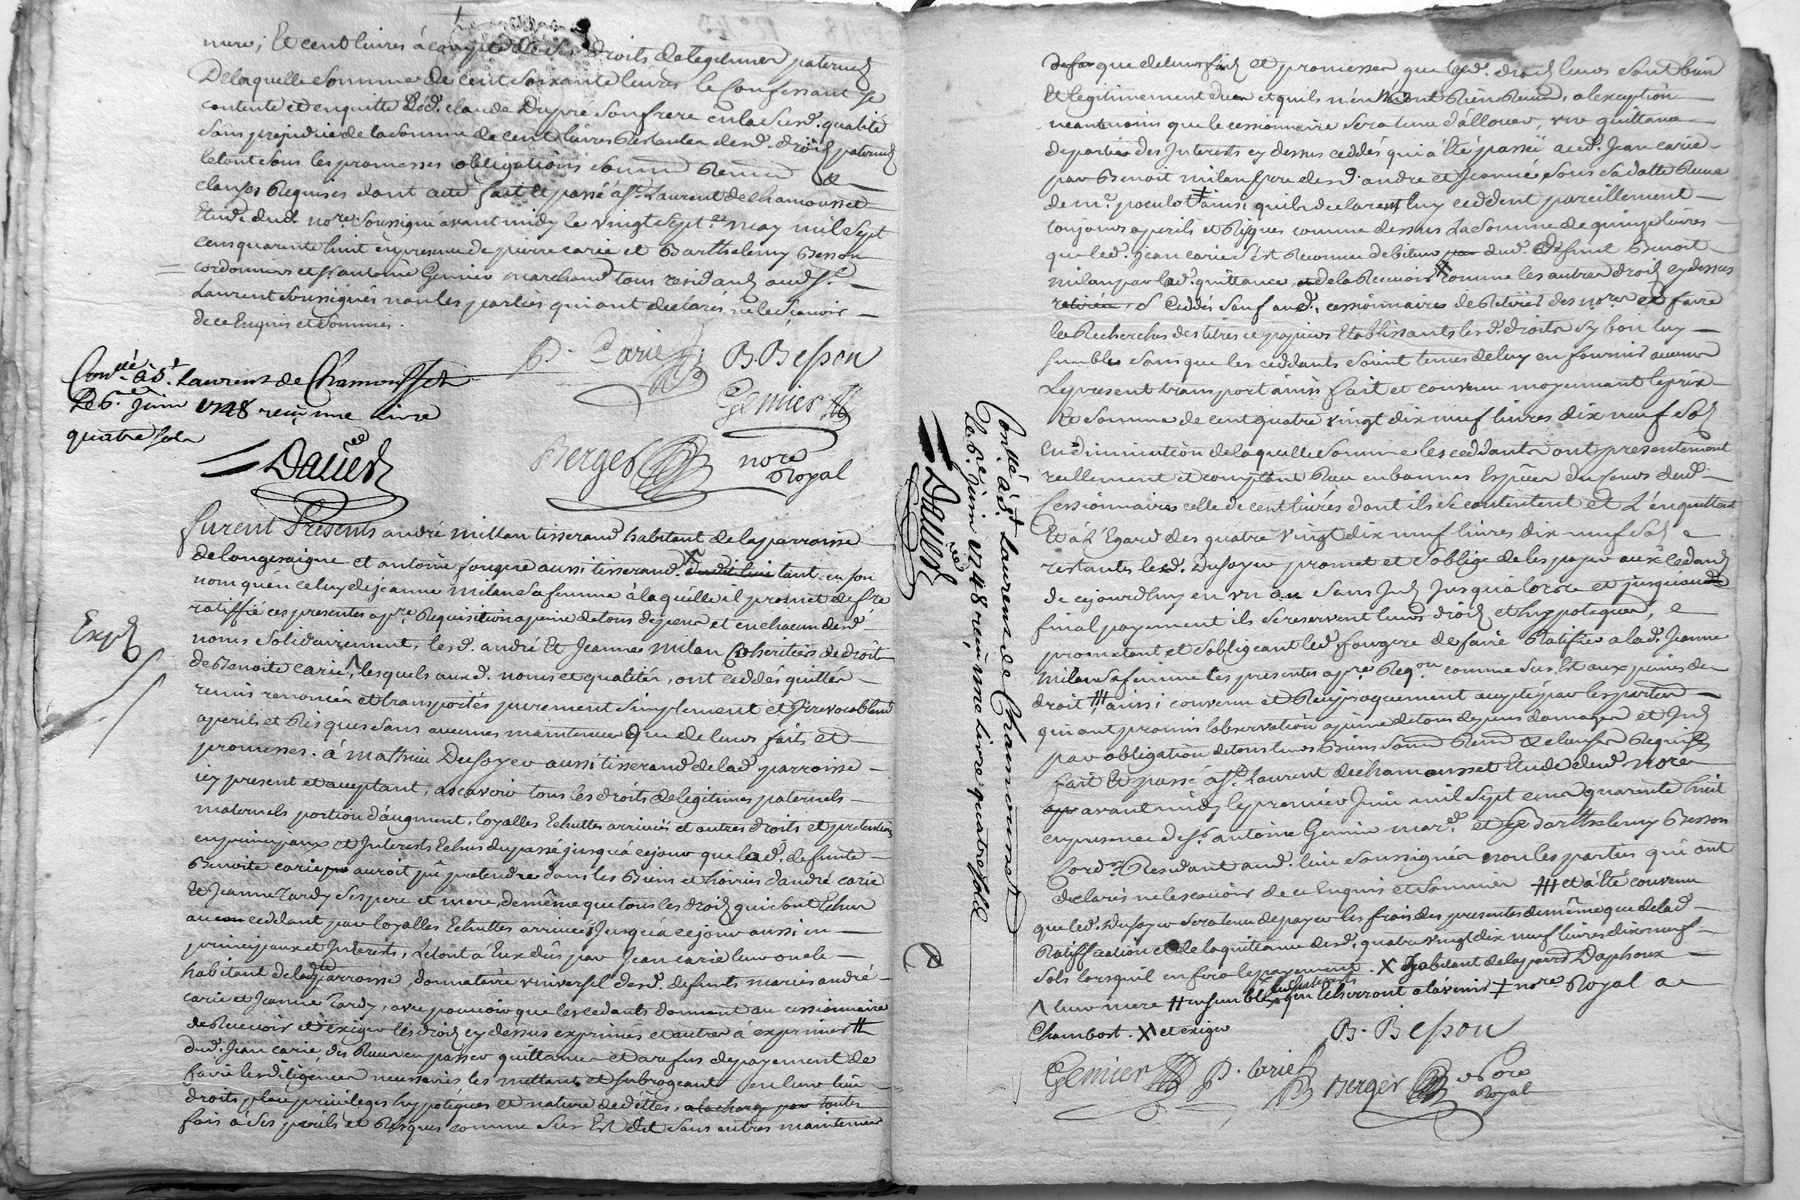 mere, Et cent livres à compte de ses droits de legitimes paternels
De laquelle somme de cent soixante livres le Confessant se
contente et en quitte led. claude Dupré son frere en lad. qualité
sans prejudice de la somme de cent livres Restantes desd. droits paternels
le tout sous les promesses obligations soumis Renon &
clauses Requises dont acte fait et passé a St. Laurent de chamousset
Etude dud nore. soussigné avant midy le vingt sept. may mil sept
cens quarente huit en presence de pierre carié et Barthelemy Besson
cordonniers et sr. antoine Gemier marchand tous residants aud st.
Laurent soussignés non les parties qui ont declarés ne le scavoir
de ce Enquis et sommés.
P. Carié B. Besson
Gemier
Conllé à St. Laurent de Chamousset
Le 6e. juin 1748 reçu une livre
quatre sols
Daved
Berger nore
Royal
furent Presents andré millan tisserand habitant de la parroisse
de longesaigne et antoine fougere aussi tisserand tant en son
nom qu'en celuy de jeanne milan sa femme à laquelle il promet de fre
ratiffié ces presentes apre. Requisition a peine de tous depens et en chacun desd.
noms solidairement, lesd. andré Et Jeanne milan Coheritiers de droit
de Benoite carié, lesquels auxd. noms et qualités, ont ceddés quittés
remis renoncés et transportés purement simplement et Irrevocablemt
a perils et Risques sans aucunes maintenues Que de leurs faits et
promesses. à mathieu Dusoyer aussi tisserand de lad. parroisse
icy present et acceptant, ascavoir tous les droits de legitimes paternels
maternels portion d'augment, loyalles Echuttes arrivées et autres droits et pretentions
en principaux et Interests Echus du passé jusqu'à ce jour que lad. defunte
Benoite carié auroit pû pretendre dans les Biens et hoiries d'andré carié
Et Jeanne Tardy ses pere et mere, de même que tous les droits qui sont Echus
aux ceddant par loyalles Echuttes arrivées Jusqu'à ce jour aussi en
principaux et Interests, Le tout à Eux dûs par Jean carié leur oncle
habitant de lad. parroisse, donnataire universel desd. defunts mariés andré
carié et Jeanne Tardy, avec pouvoir que les cedants donnent au cessionnaire
de Recevoir et d'exiger les droits cy dessus exprimés et autres à exprimer #
dud. Jean carié, des Reçus en passer quittances et a refus de payement de
faire les diligences necessaires les mettant et subrogeant en leur lieu
droits place privileges hypoteques et nature de dettes, a la charge par toutes
fois à ses perils et Risques comme sus Est dit sans autres maintenues
Expé
que de leurs faits et promesses que lesd. droits leurs sont bien
Et legitimement dues et qu'ils n'en ont Rien Reçus, a l'exception
neantmoins que le cessionnaire sera tenu d'allouer, une quittance
de partie des Interests cy dessus ceddés qui a Eté passée aud. Jean carié
par Benoit milan frere desd. andré et Jeanne sous sa datte Reçue
de me. poculot ‡ ainsi qu'ils declarent, luy ceddent pareillement
toujours a perils et Risques comme dessus La somme de quinze livres
que led. jean carié s'est Reconnu debiteur dud. defunt Benoit
milan par lad. quittance de la Recevoir X comme les autres droits cy dessus
Ceddés sauf aud. cessionnaires de Retirer des nores et faire
les Recherches des titres et papiers Etablissants lesd. droits sy bon luy
semble sans que les ceddants soient tenus de luy en fournir aucuns
Le present transport ainsi fait et convenu moyennant le prix
Et somme de cent quatre vingt dix neuf livres dix neuf sols
En diminution de laquelle somme les ceddants ont presentement
reellement et comptant Reçu en bonnes Espèces du cours dud.
Cessionnaire celle de cent livres dont ils se contentent et L'en quittent
Et à l'Egard des quatre vingt dix neuf livres dix neuf sols
restantes led. Dusoyer promet et s'oblige de les payer aux cedants
de ce jourd'huy en un an sans Int. Jusqu'à lors et jusqu'au
final payement ils se reservent leurs droits et hypoteques,
promettant et s'obligeant led. fougere de faire Ratifier a lad. Jeanne
milan sa femme les presentes apre. Reqon comme dessus Est aux peines de
droit # ainsi convenu et Reciproquement accepté par les parties
qui ont promis l'observation a peine de tous depens domages et Int.
par obligation de tous leurs Biens soum Renon & clauses Requises
fait Et passé a St. Laurent de chamousset Etude dud. nore
avant midy le premier Juin mil sept cens quarente huit
en presence de sr. antoine Gemier mard. et de Barthelemy Besson
Cordr. Residant aud. lieu soussignés non les parties qui ont
declarés ne le scavoir de ce Enquis et sommés # et a Eté convenu
que led. Dusoyer sera tenu de payer les frais des presentes de même que de lad.
Ratiffication et de la quittance desd. quatre vingt dix neuf livres dix neuf
sols lorsqu'il en fera le payement. X habitant de la parr. Daphoux
^ leur mere # ensemble ceux qui Echerront a l'avenir ‡ nore Royal a
Chambost. X et exiger
B. Besson
Gemier P. Carié Berger Nore
Royal
Conllé à St. Laurent de Chamousset
Le 6e. juin 1748 reçu une livre quatre sols
Daved